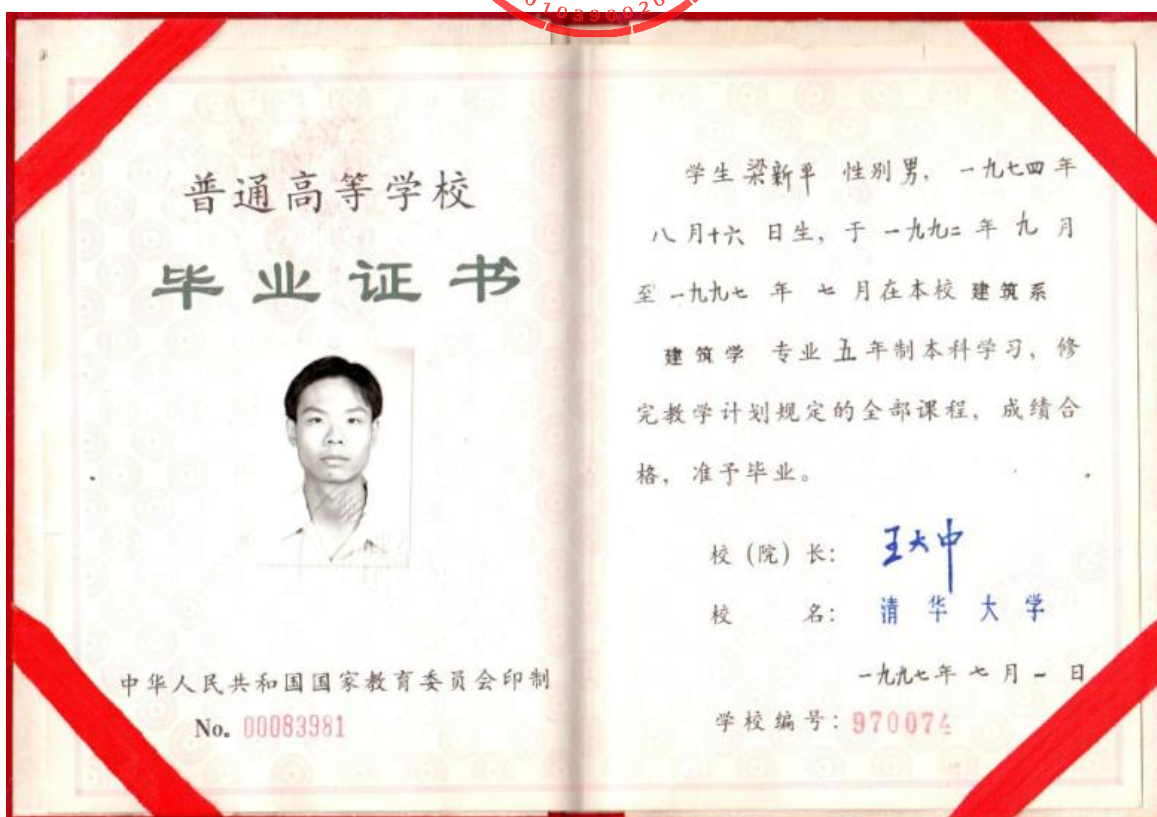 普通高等学校
毕业证书
中华人民共和国国家教育委员会印制
No. 00083981
学生 梁新平 性别 男, 一九七四年
八月十六日生, 于一九九二年九月
至一九九七年七月在本校 建筑系
建筑学 专业 五年制本科学习, 修
完教学计划规定的全部课程, 成绩合
格, 准予毕业。
校(院)长: 王大中
校 名: 清华大学
一九九七年七月一日
学校编号: 970074